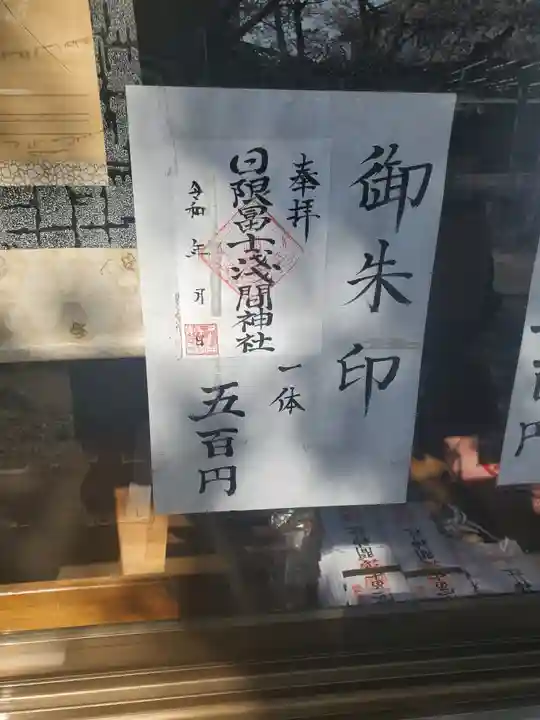 御朱印
奉拝
日限冨士浅間神社
令和 年 月 日
一体
五百円
百円